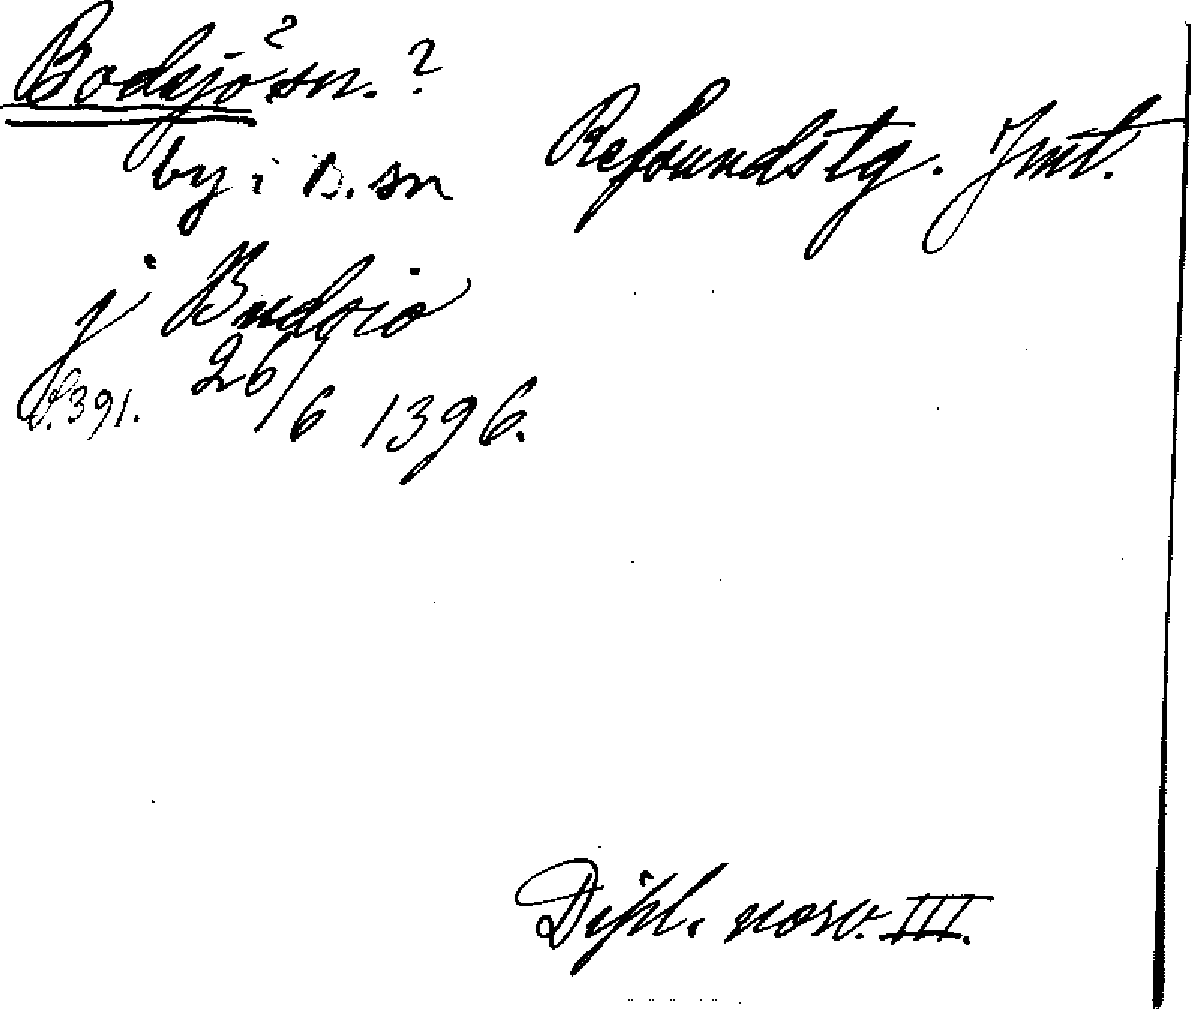 Bodsjö sn. ?
by i B. sn
Refsundstg. Jmt.
j Budsio
S. 391. 26/6 1396.
Dipl. norv. III.